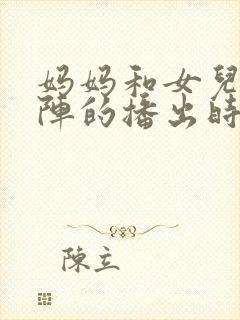 妈妈和女兒
陣的播出時
陳立